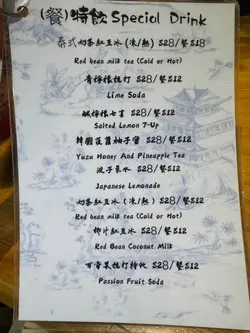 (餐)特飲 Special Drink
泰式奶茶紅豆冰(凍/熱) $28/餐$18
Red bean milk tea (Cold or Hot)
青檸檬梳打 $28/餐$12
Lime Soda
鹹檸檬七喜 $28/餐$12
Salted Lemon 7-Up
韓國菠蘿柚子蜜 $28/餐$12
Yuzu Honey And Pineapple Tea
波子汽水 $28/餐$12
Japanese Lemonade
奶茶紅豆冰(凍/熱) $28/餐$12
Red bean milk tea (Cold or Hot)
椰汁紅豆冰 $28/餐$12
Red Bean Coconut Milk
百香果梳打特飲 $28/餐$12
Passion Fruit Soda